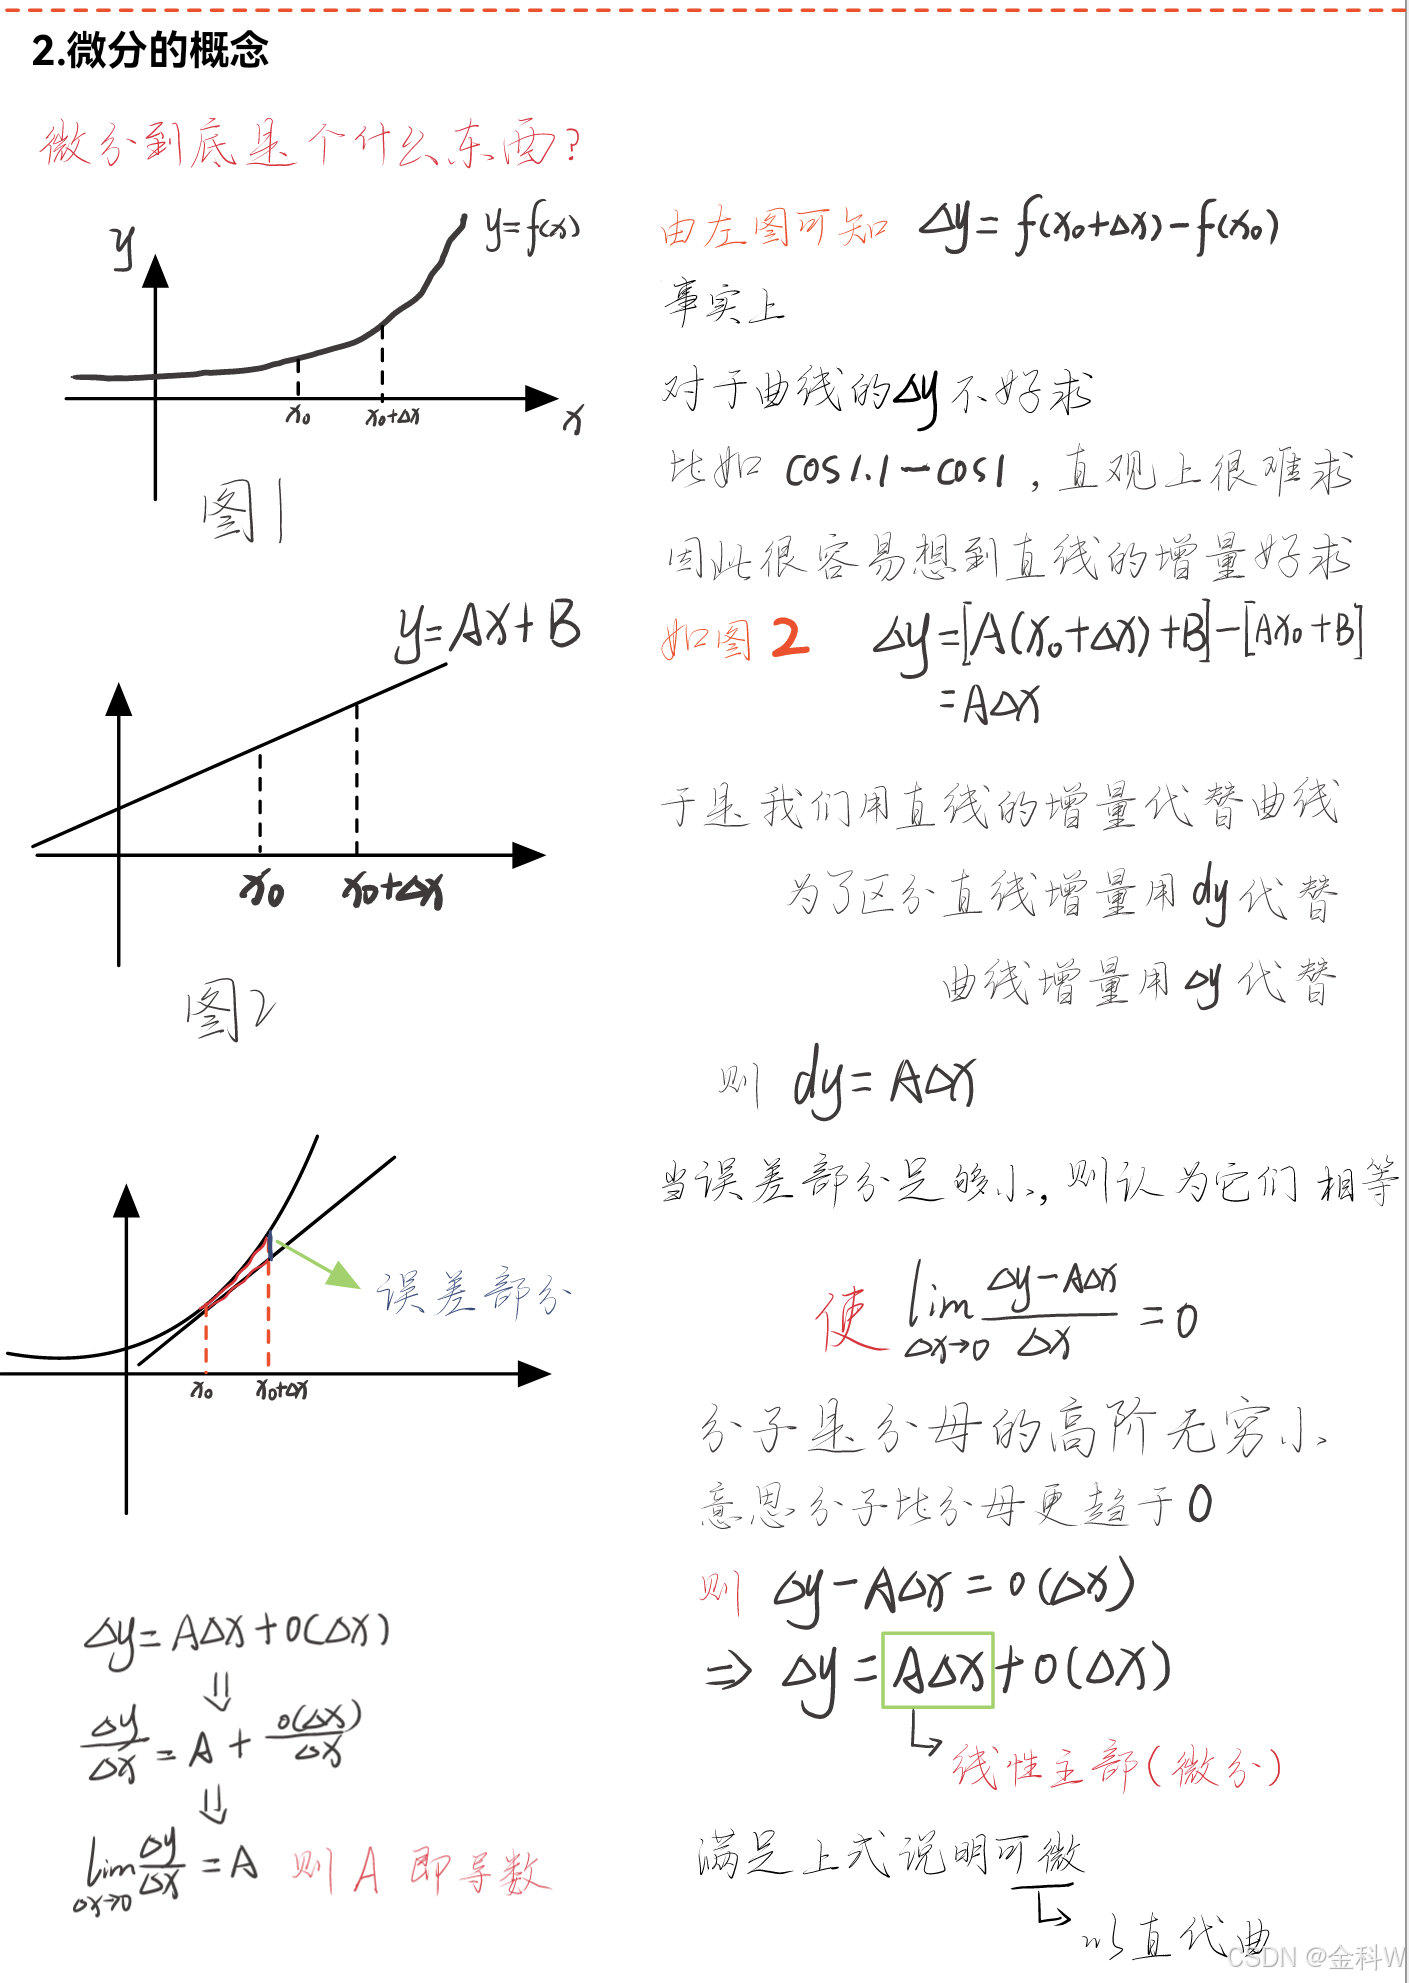 2.微分的概念
微分到底是个什么东西?
y
y=f(x)
x₀
x₀+Δx
x
图1
由左图可知 Δy=f(x₀+Δx)-f(x₀)
事实上
对于曲线的Δy不好求
比如 cos1.1-cos1,直观上很难求
因此很容易想到直线的增量好求
y=Ax+B
x₀
x₀+Δx
图2
如图2 Δy=[A(x₀+Δx)+B]-[Ax₀+B]
=AΔx
于是我们用直线的增量代替曲线
为了区分直线增量用dy代替
曲线增量用Δy代替
则 dy=AΔx
当误差部分足够小,则认为它们相等
误差部分
x₀
x₀+Δx
使 lim Δx→0 (Δy-AΔx)/Δx =0
分子是分母的高阶无穷小
意思分子比分母更趋于0
则 Δy-AΔx=0(Δx)
⇒ Δy=AΔx+0(Δx)
线性主部(微分)
满足上式说明可微
以直代曲
Δy=AΔx+0(Δx)
⇓
Δy/Δx=A+0(Δx)/Δx
⇓
lim Δx→0 Δy/Δx=A 则A即导数
CSDN @金科W